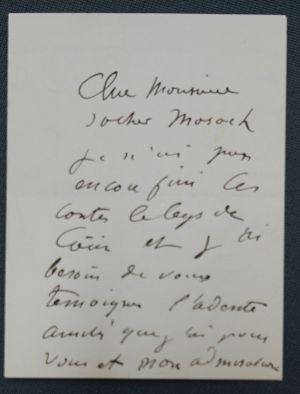 Cher Monsieur
Sacher Masoch
je n'ai pas
encore fini les
contes le legs de
Caïn et j'ai
besoin de vous
temoigner l'
amitié que j'ai pour
vous et mon admiration